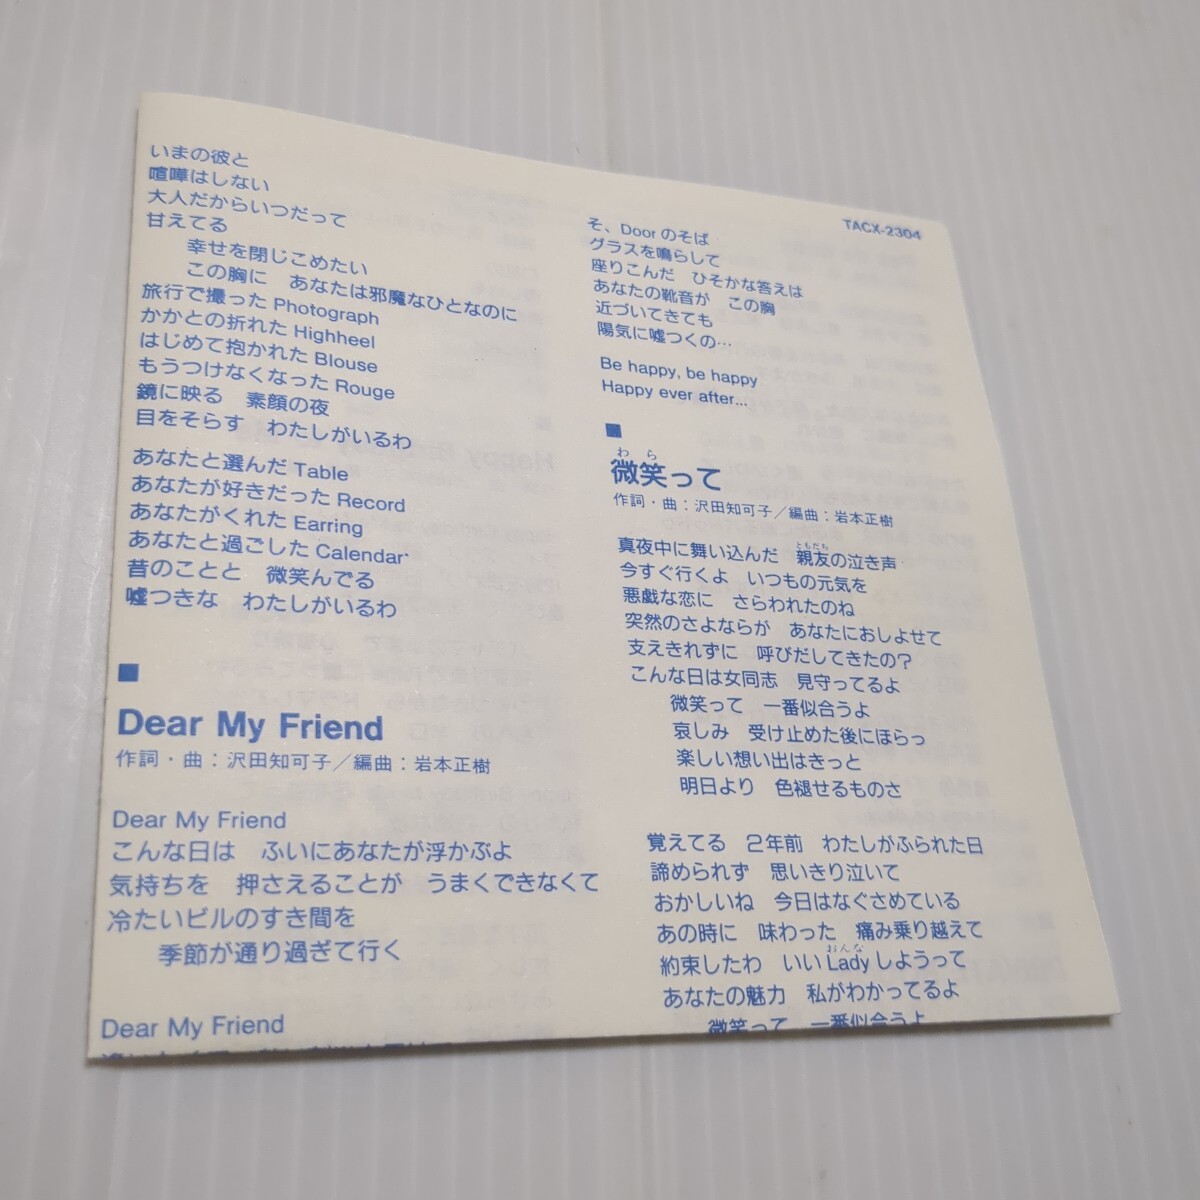 いまの彼と
喧嘩はしない
大人だからいつだって
甘えてる
幸せを閉じこめたい
この胸に　あなたは邪魔なひとなのに
旅行で撮った Photograph
かかとの折れた Highheel
はじめて抱かれた Blouse
もうつけなくなった Rouge
鏡に映る　素顔の夜
目をそらす　わたしがいるわ
あなたと選んだ Table
あなたが好きだった Record
あなたがくれた Earring
あなたと過ごした Calendar
昔のことと　微笑んでる
嘘つきな　わたしがいるわ
■
Dear My Friend
作詞・曲：沢田知可子／編曲：岩本正樹
Dear My Friend
こんな日は　ふいにあなたが浮かぶよ
気持ちを　押さえることが　うまくできなくて
冷たいビルのすき間を
季節が通り過ぎて行く
Dear My Friend
TACX-2304
そ、Door のそば
グラスを鳴らして
座りこんだ　ひそかな答えは
あなたの靴音が　この胸
近づいてきても
陽気に嘘つくの…
Be happy, be happy
Happy ever after...
■
わら
微笑って
作詞・曲：沢田知可子／編曲：岩本正樹
ともだち
真夜中に舞い込んだ　親友の泣き声
今すぐ行くよ　いつもの元気を
悪戯な恋に　さらわれたのね
突然のさよならが　あなたにおしよせて
支えきれずに　呼びだしてきたの？
こんな日は女同志　見守ってるよ
微笑って　一番似合うよ
哀しみ　受け止めた後にほらっ
楽しい想い出はきっと
明日より　色褪せるものさ
覚えてる　2年前　わたしがふられた日
諦められず　思いきり泣いて
おかしいね　今日はなぐさめている
あの時に　味わった　痛み乗り越えて
おんな
約束したわ　いい Lady しようって
あなたの魅力　私がわかってるよ
微笑って　一番似合うよ